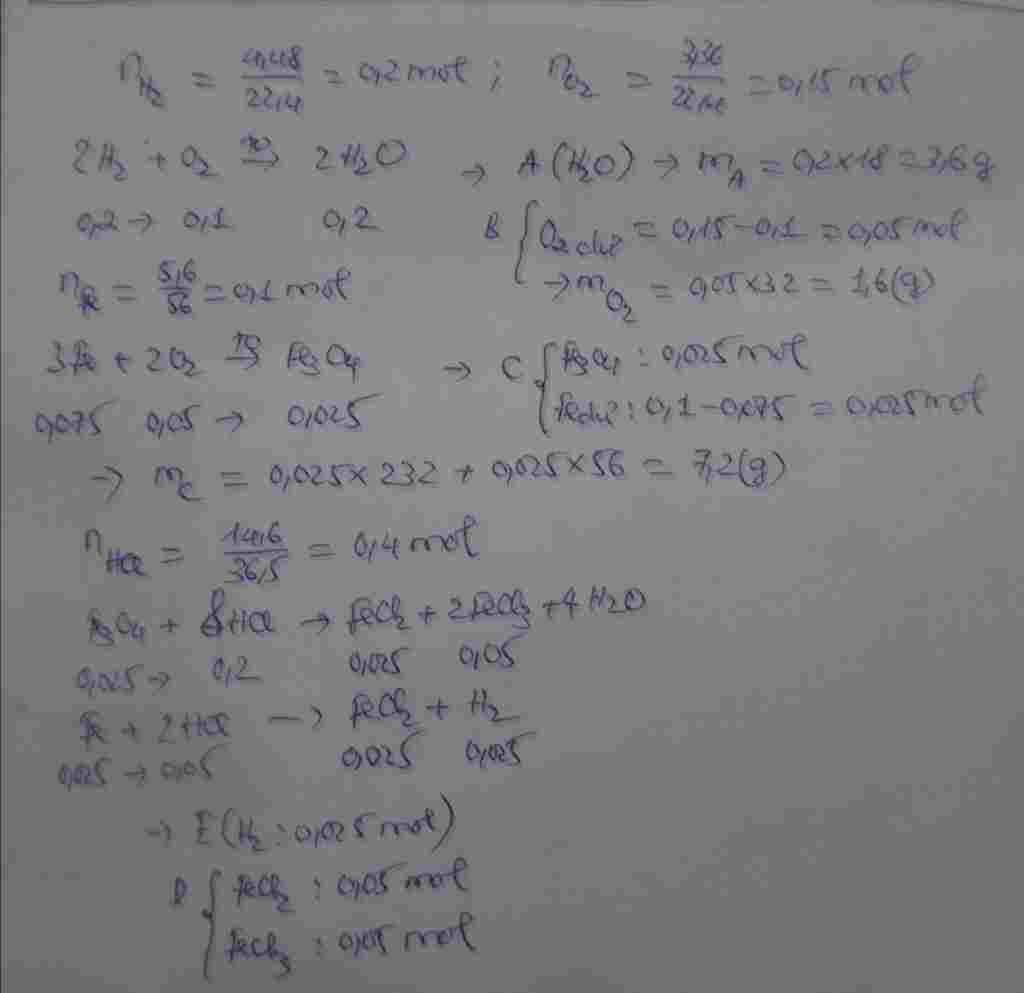 n_H₂ = 4,48/22,4 = 0,2 mol ; n_O₂ = 3,36/22,4 = 0,15 mol
2H₂ + O₂ →(t°) 2H₂O → A (H₂O) → m_A = 0,2 × 18 = 3,6 g
0,2 → 0,1 0,2 B { O₂ dư = 0,15 - 0,1 = 0,05 mol
→ m_O₂ = 0,05 × 32 = 1,6 (g)
n_Fe = 5,6/56 = 0,1 mol
3Fe + 2O₂ →(t°) Fe₃O₄ → C { Fe₃O₄ : 0,025 mol
0,075 0,05 → 0,025 Fe dư : 0,1 - 0,075 = 0,025 mol
→ m_C = 0,025 × 232 + 0,025 × 56 = 7,2 (g)
n_HCl = 14,6/36,5 = 0,4 mol
Fe₃O₄ + 8HCl → FeCl₂ + 2FeCl₃ + 4H₂O
0,025 → 0,2 0,025 0,05
Fe + 2HCl → FeCl₂ + H₂
0,025 → 0,05 0,025 0,025
→ E (H₂ : 0,025 mol)
D { FeCl₂ : 0,05 mol
FeCl₃ : 0,05 mol